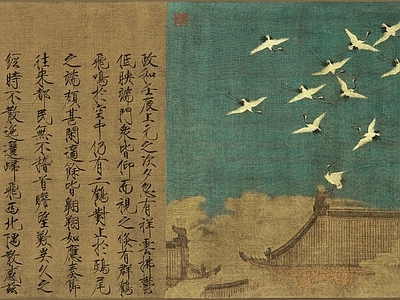 政和壬辰上元之次夕忽有祥雲拂鬱
低映端門眾皆仰而視之倏有群鶴
飛鳴於空中仍有二鶴對止於鴟尾
之端頗甚閒適餘皆翱翔如應奏節
往來都民無不稽首瞻望歎異久之
經時不散迤邐歸飛西北隅散感茲